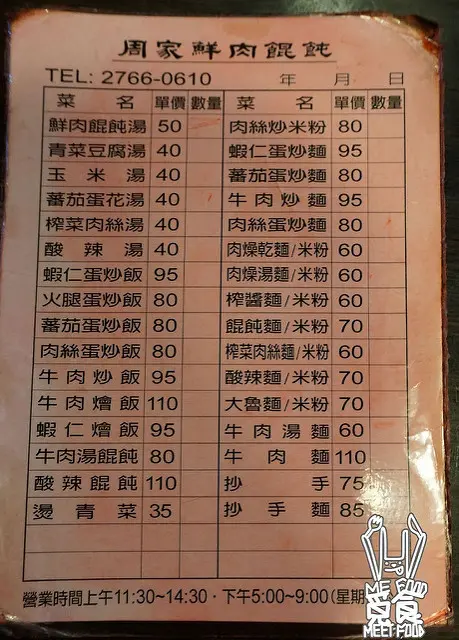 周家鮮肉餛飩
TEL: 2766-0610 年 月 日
菜名 單價 數量 菜名 單價 數量
鮮肉餛飩湯 50 肉絲炒米粉 80
青菜豆腐湯 40 蝦仁蛋炒麵 95
玉米湯 40 蕃茄蛋炒麵 80
蕃茄蛋花湯 40 牛肉炒麵 95
榨菜肉絲湯 40 肉絲蛋炒麵 80
酸辣湯 40 肉燥乾麵/米粉 60
蝦仁蛋炒飯 95 肉燥湯麵/米粉 60
火腿蛋炒飯 80 榨醬麵/米粉 60
蕃茄蛋炒飯 80 餛飩麵/米粉 70
肉絲蛋炒飯 80 榨菜肉絲麵/米粉 60
牛肉炒飯 95 酸辣麵/米粉 70
牛肉燴飯 110 大魯麵/米粉 70
蝦仁燴飯 95 牛肉湯麵 60
牛肉湯餛飩 80 牛肉麵 110
酸辣餛飩 110 抄手 75
燙青菜 35 抄手麵 85
營業時間上午11:30~14:30·下午5:00~9:00(星期
MEET FOOD